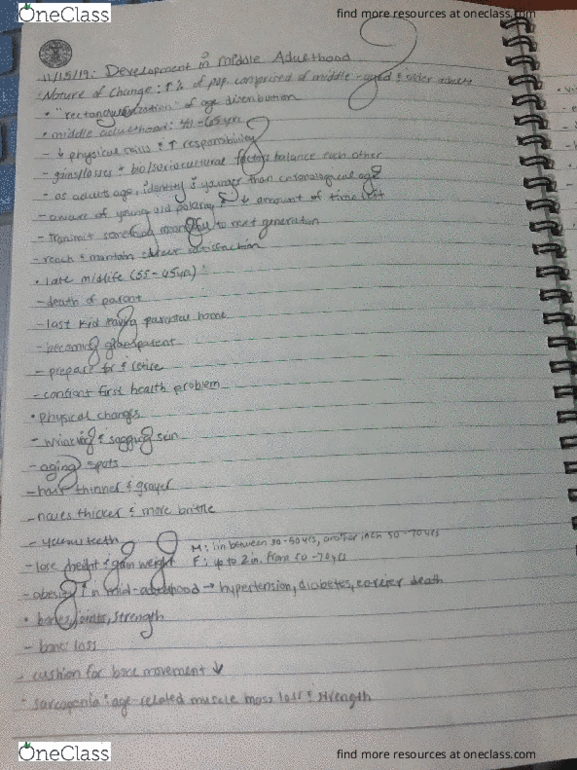 OneClass
find more resources at oneclass.com
11/15/19: Development in Middle Adulthood
Nature of Change: ↑% of pop. comprised of middle-aged & older adults
• "rectangularization" of age distribution
• middle adulthood: -65yrs
- ↓ physical skills & ↑ responsibility
- gains/losses & bio/sociocultural factors balance each other
- as adults age, identity is younger than chronological age
- aware of young-old polarity & ↓ amount of time left
- transmit something meaningful to next generation
- reach & maintain career satisfaction
• late midlife (55-65yrs)
- death of parent
- last kid leaving parental home
- becoming grandparent
- prepare for retire
- confront first health problem
• physical changes
- wrinkling & sagging skin
- aging spots
- hair thinner & grayer
- nails thicker & more brittle
- yellow teeth
- lose height & gain weight
M: 1in between 30-50yrs, another inch 50-70yrs
F: up to 2in. from 50-70yrs
- obesity in mid-adulthood → hypertension, diabetes, earlier death
• bones, joints, strength
- bone loss
- cushion for bone movement ↓
- sarcopenia: age-related muscle mass loss & strength
OneClass
find more resources at oneclass.com